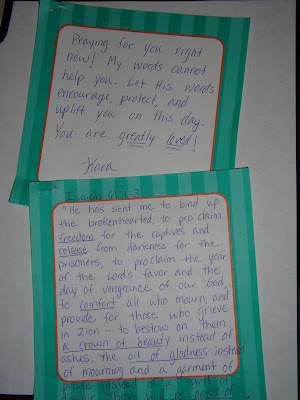 Praying for you right
now! My words cannot
help you. Let His words
encourage, protect, and
uplift you on this day.
You are greatly loved!
-Kara
Isaiah 61:1-3
"He has sent me to bind up
the brokenhearted, to proclaim
freedom for the captives and
release from darkness for the
prisoners, to proclaim the year
of the Lord's favor and the
day of vengeance of our God,
to comfort all who mourn, and
provide for those who grieve
in Zion - to bestow on them
a crown of beauty instead of
ashes, the oil of gladness instead
of mourning and a garment of
praise instead of a spirit of